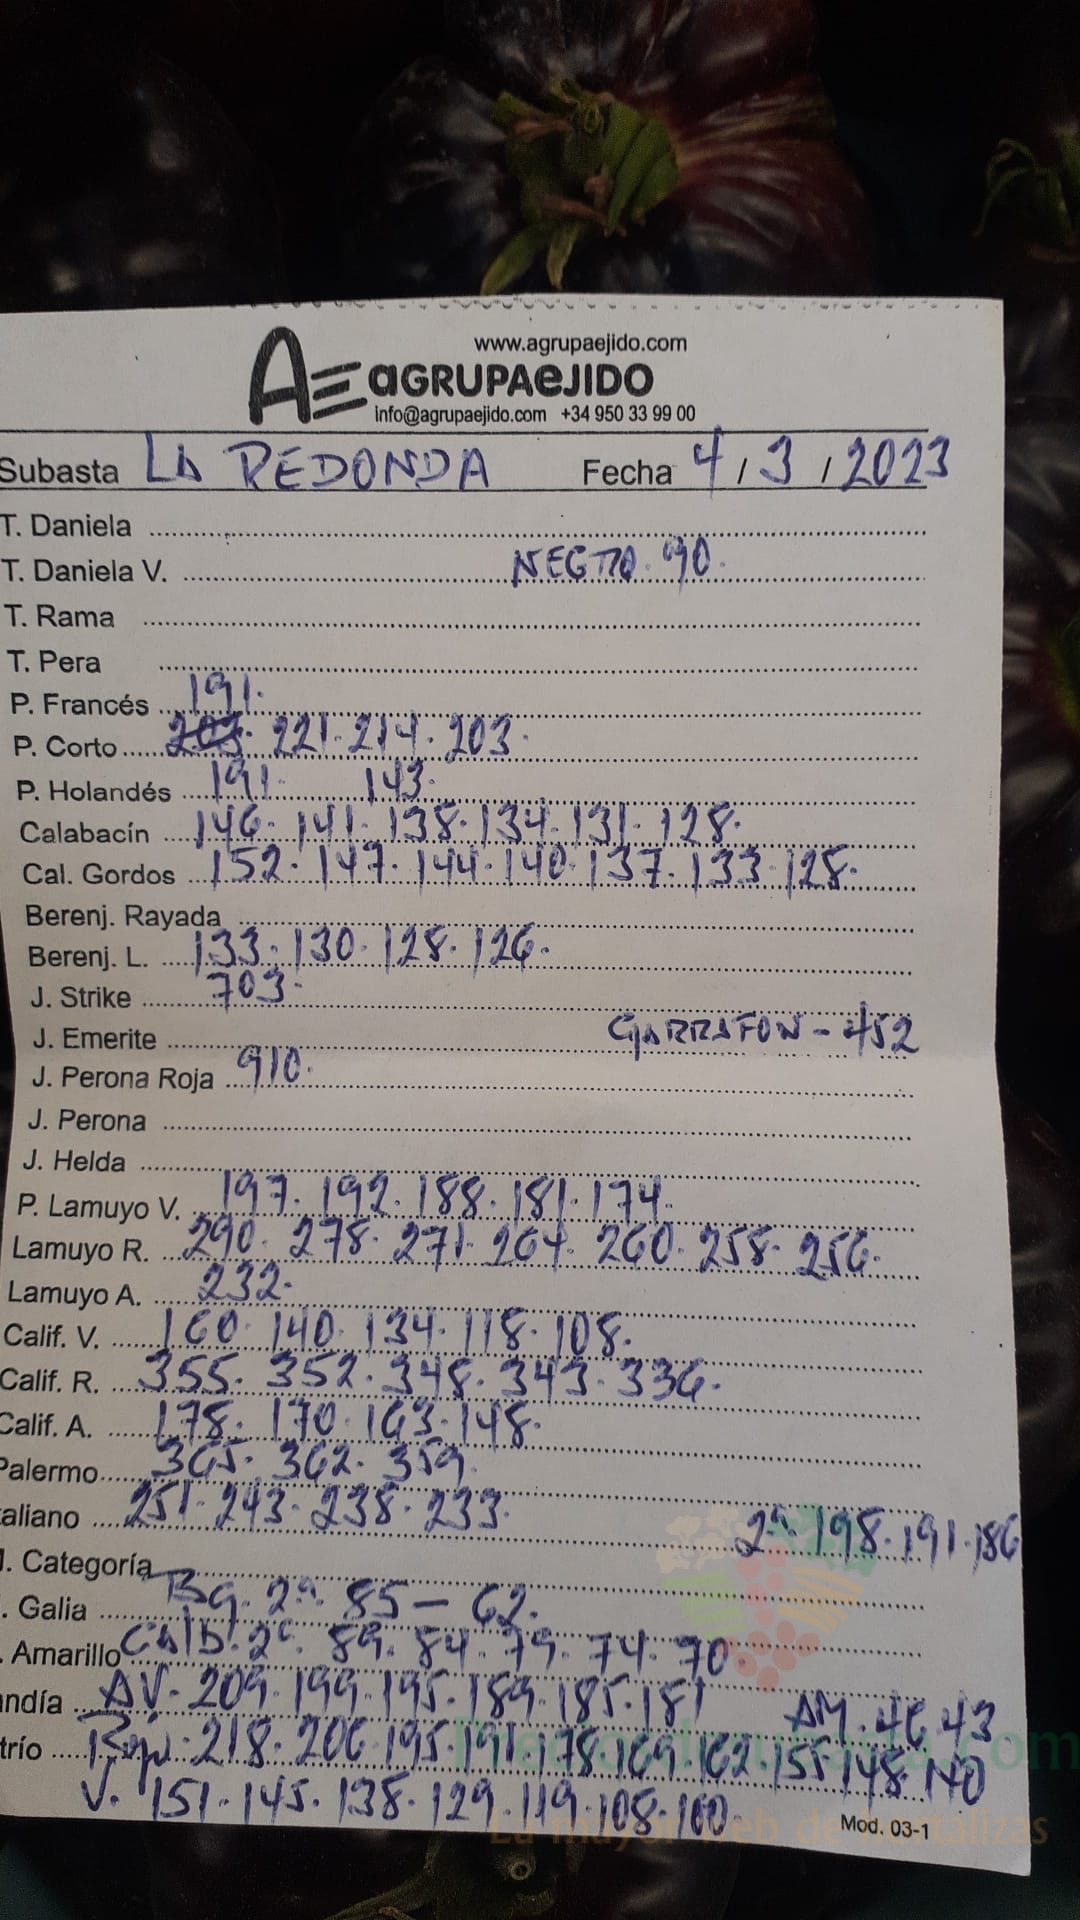 www.agrupaejido.com
AE aGRUPAeJIDO
info@agrupaejido.com +34 950 33 99 00
Subasta LA REDONDA Fecha 4 / 3 / 2023
T. Daniela
T. Daniela V. NEGRO. 90.
T. Rama
T. Pera
P. Francés 191.
P. Corto 203. 221. 214. 203.
P. Holandés 191. 143.
Calabacín 146. 141. 138. 134. 131. 128.
Cal. Gordos 152. 147. 144. 140. 137. 133. 128.
Berenj. Rayada
Berenj. L. 133. 130. 128. 126.
J. Strike 703.
J. Emerite GARRAFON - 452
J. Perona Roja 910.
J. Perona
J. Helda
P. Lamuyo V. 197. 192. 188. 181. 174.
Lamuyo R. 290. 278. 271. 264. 260. 258. 256.
Lamuyo A. 232.
Calif. V. 160. 140. 134. 118. 108.
Calif. R. 355. 352. 348. 343. 336.
Calif. A. 178. 170. 163. 148.
Palermo 365. 362. 359.
taliano 251. 243. 238. 233. 2ª. 198. 191. 186
. Categoría
. Galia Bg. 2ª. 85 - 62.
. Amarillo Calb. 2ª. 89. 84. 79. 74. 70.
ndía AV. 209. 199. 195. 189. 185. 181 AM. 46. 43
trío Rojo. 218. 206. 195. 191. 178. 169. 162. 155. 148. 140
V. 151. 145. 138. 129. 119. 108. 100.
La mayor web de hortalizas
Mod. 03-1